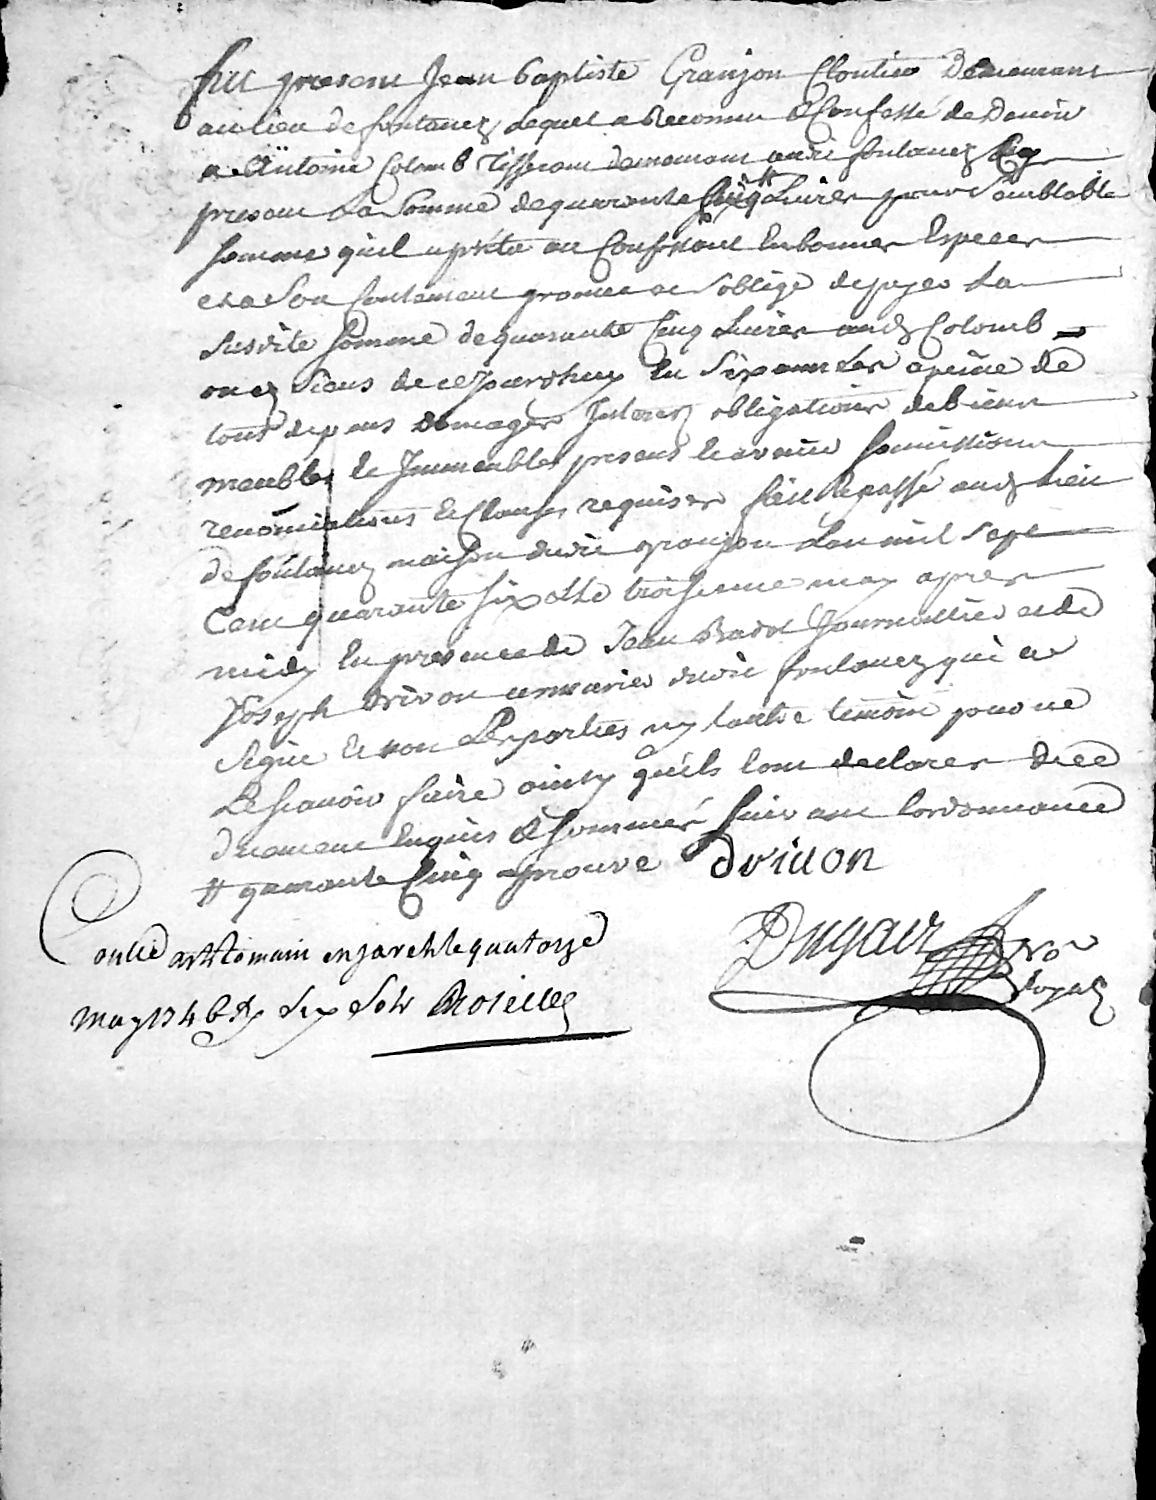 fut present Jean baptiste Granjon Cloutier Demeurant
au lieu de fontanez, Lequel a Reconnu & Confessé de Devoir
a Antoine Colomb Tisserant demeurant audit fontanez icy
present La Somme de quarante Cinq # Livres pour Semblable
Somme quil a prété au Confessant En bonnes Especes
et a Son Contement promet et soblige de payer La
Susdite Somme de quarante Cinq Livres aud Colomb
ou ez Siens de ce Jourdhuy En Six années apeine de
tous depens domages Interez obligations de biens
meubles & Immeubles presens & avenir Soumissions
renonciations & Clauses requises fait & passé aud Lieu
de fontanez maison dudit granjon Lan mil Sept
Cent quarante Six & le troisieme may apres
midy En presence de Jean Journallier et de
Joseph drivon dudit fontanez qui a
Signé & non Les parties ny lautre temoin pour ne
Le Scavoir faire ainsy quils lont declarer de ce
duement Enquis & Sommés Suivant lordonnance
# quarante Cinq aprouvé drivon
Conllé a St Romain en Jarest le quatorze
May 1746 Rx Six Sols
Dugair No^re
Royal